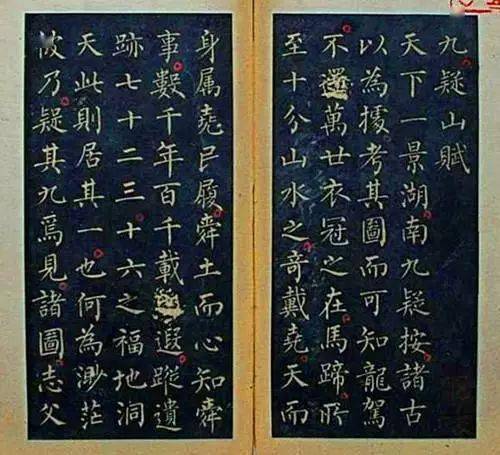 九疑山賦
天下一景湖南九疑按諸古
以為據考其圖而可知龍駕
不還萬世衣冠之在馬蹄所
至十分山水之奇戴堯天而
身属堯民履舜土而心知舜
事數千年百千載遐蹤遺
跡七十二三十六之福地洞
天此則居其一也何為渺茫
彼乃疑其九焉見諸圖志父